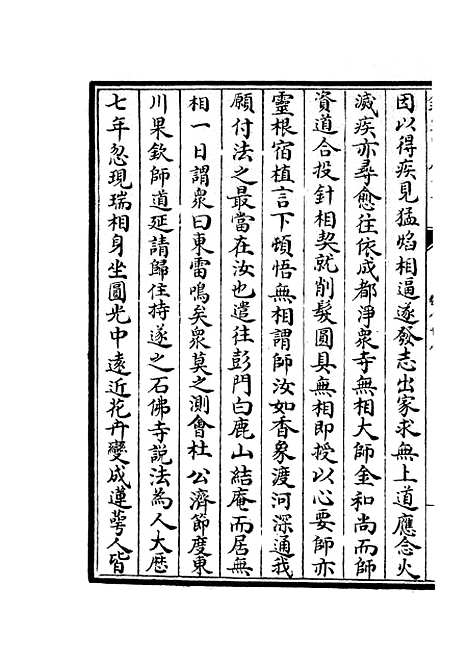 因以得疾見猛焰相逼遂發志出家求無上道應念火
滅疾亦尋愈往依成都淨衆寺無相大師金和尚而師
資道合投針相契就削髮圓具無相即授以心要師亦
靈根宿植言下頓悟無相謂師汝如香象渡河深通我
願付法之最當在汝也遣往彭門白鹿山結庵而居無
相一日謂衆曰東雷鳴矣衆莫之測會杜公濟節度東
川果欽師道延請歸住持遂之石佛寺説法為人大厯
七年忽現瑞相身坐圓光中遠近花卉變成蓮萼人皆